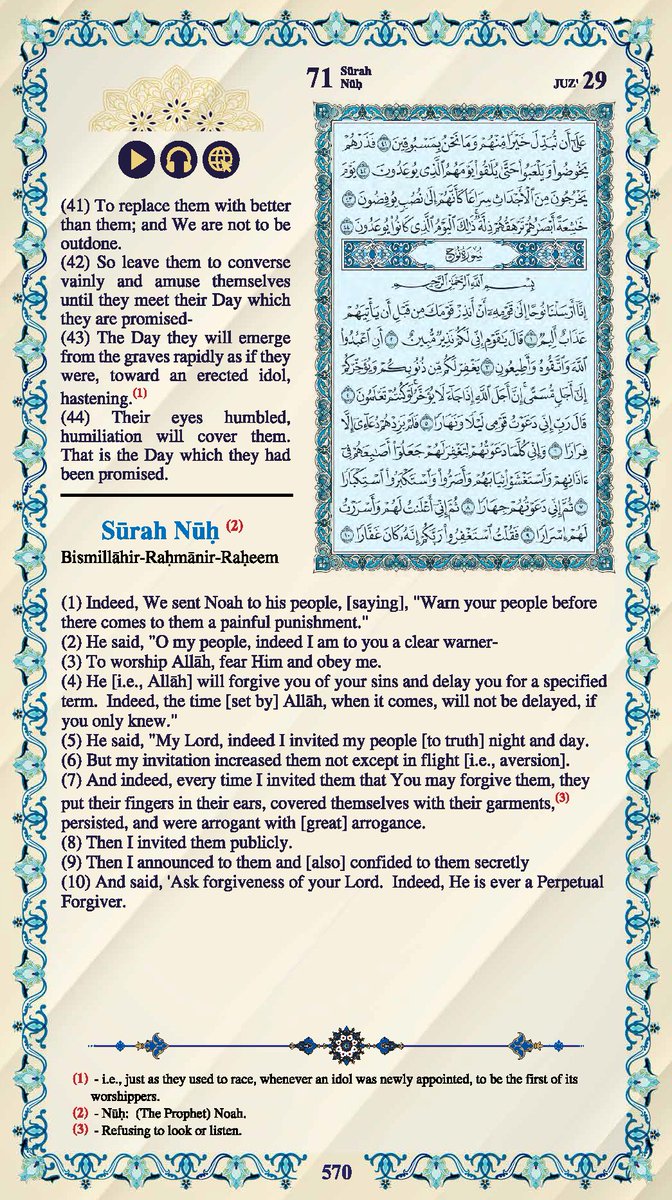 71 Sūrah
Nūḥ
JUZ' 29
(41) To replace them with better
than them; and We are not to be
outdone.
(42) So leave them to converse
vainly and amuse themselves
until they meet their Day which
they are promised-
(43) The Day they will emerge
from the graves rapidly as if they
were, toward an erected idol,
hastening.(1)
(44) Their eyes humbled,
humiliation will cover them.
That is the Day which they had
been promised.
عَلَىٰٓ أَن نُّبَدِّلَ خَيْرًا مِّنْهُمْ وَمَا نَحْنُ بِمَسْبُوقِينَ ٤١ فَذَرْهُمْ
يَخُوضُوا۟ وَيَلْعَبُوا۟ حَتَّىٰ يُلَٰقُوا۟ يَوْمَهُمُ ٱلَّذِى يُوعَدُونَ ٤٢ يَوْمَ
يَخْرُجُونَ مِنَ ٱلْأَجْدَاثِ سِرَاعًا كَأَنَّهُمْ إِلَىٰ نُصُبٍ يُوفِضُونَ ٤٣
خَٰشِعَةً أَبْصَٰرُهُمْ تَرْهَقُهُمْ ذِلَّةٌ ذَٰلِكَ ٱلْيَوْمُ ٱلَّذِى كَانُوا۟ يُوعَدُونَ ٤٤
سُورَةُ نُوحٍ
بِسْمِ ٱللَّهِ ٱلرَّحْمَٰنِ ٱلرَّحِيمِ
إِنَّآ أَرْسَلْنَا نُوحًا إِلَىٰ قَوْمِهِۦٓ أَنْ أَنذِرْ قَوْمَكَ مِن قَبْلِ أَن يَأْتِيَهُمْ
عَذَابٌ أَلِيمٌ ١ قَالَ يَٰقَوْمِ إِنِّى لَكُمْ نَذِيرٌ مُّبِينٌ ٢ أَنِ ٱعْبُدُوا۟
ٱللَّهَ وَٱتَّقُوهُ وَأَطِيعُونِ ٣ يَغْفِرْ لَكُم مِّن ذُنُوبِكُمْ وَيُؤَخِّرْكُمْ
إِلَىٰٓ أَجَلٍ مُّسَمًّى إِنَّ أَجَلَ ٱللَّهِ إِذَا جَآءَ لَا يُؤَخَّرُ لَوْ كُنتُمْ تَعْلَمُونَ ٤
قَالَ رَبِّ إِنِّى دَعَوْتُ قَوْمِى لَيْلًا وَنَهَارًا ٥ فَلَمْ يَزِدْهُمْ دُعَآءِىٓ إِلَّا
فِرَارًا ٦ وَإِنِّى كُلَّمَا دَعَوْتُهُمْ لِتَغْفِرَ لَهُمْ جَعَلُوٓا۟ أَصَٰبِعَهُمْ فِىٓ
ءَاذَانِهِمْ وَٱسْتَغْشَوْا۟ ثِيَابَهُمْ وَأَصَرُّوا۟ وَٱسْتَكْبَرُوا۟ ٱسْتِكْبَارًا
٧ ثُمَّ إِنِّى دَعَوْتُهُمْ جِهَارًا ٨ ثُمَّ إِنِّىٓ أَعْلَنتُ لَهُمْ وَأَسْرَرْتُ
لَهُمْ إِسْرَارًا ٩ فَقُلْتُ ٱسْتَغْفِرُوا۟ رَبَّكُمْ إِنَّهُۥ كَانَ غَفَّارًا ١٠
Sūrah Nūḥ (2)
Bismillāhir-Raḥmānir-Raḥeem
(1) Indeed, We sent Noah to his people, [saying], "Warn your people before
there comes to them a painful punishment."
(2) He said, "O my people, indeed I am to you a clear warner-
(3) To worship Allāh, fear Him and obey me.
(4) He [i.e., Allāh] will forgive you of your sins and delay you for a specified
term. Indeed, the time [set by] Allāh, when it comes, will not be delayed, if
you only knew."
(5) He said, "My Lord, indeed I invited my people [to truth] night and day.
(6) But my invitation increased them not except in flight [i.e., aversion].
(7) And indeed, every time I invited them that You may forgive them, they
put their fingers in their ears, covered themselves with their garments,(3)
persisted, and were arrogant with [great] arrogance.
(8) Then I invited them publicly.
(9) Then I announced to them and [also] confided to them secretly
(10) And said, 'Ask forgiveness of your Lord. Indeed, He is ever a Perpetual
Forgiver.
(1) - i.e., just as they used to race, whenever an idol was newly appointed, to be the first of its
worshippers.
(2) - Nūḥ: (The Prophet) Noah.
(3) - Refusing to look or listen.
570